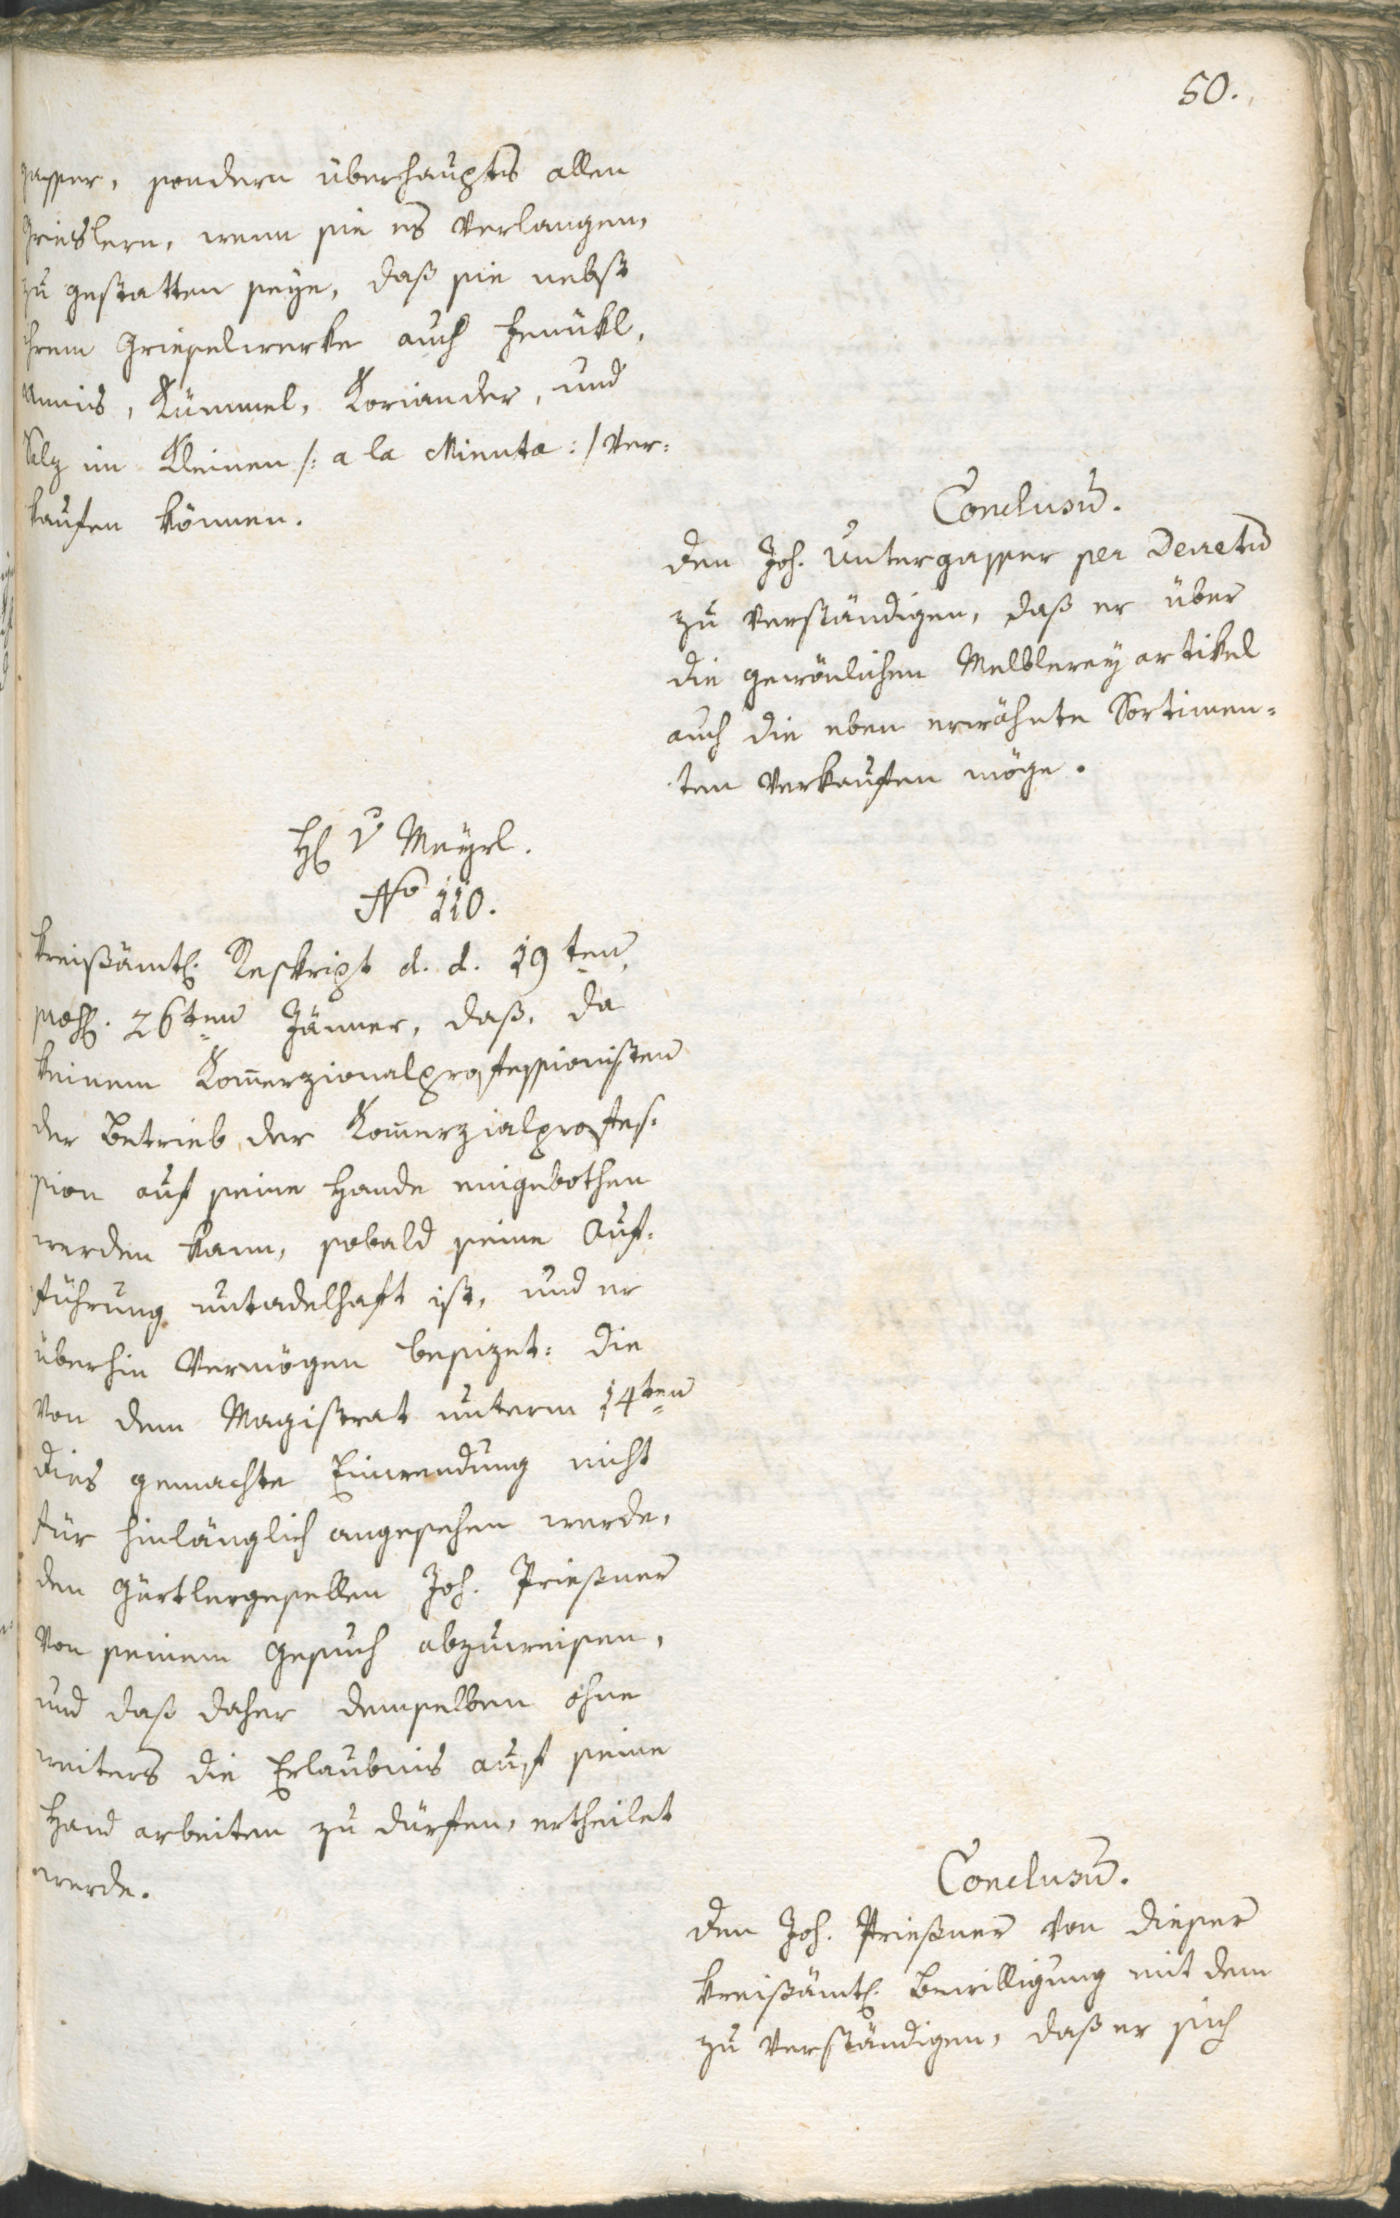 50.
gasser, sondern überhaupts allen
Grieslern, wenn sie es verlangen,
zu gestatten seye, daß sie nebst
ihrem Grieselwerke auch Fenükl,
Annis, Kümmel, Koriander, und
Salz im Kleinen /: a la Minuta :/ ver-
kaufen können.
Conclusum.
Den Joh. Untergasser per Decretum
zu verständigen, daß er über
die gewönlichen Melblerey artikel
auch die eben erwähnte Sortimen-
ten verkaufen möge.
H. v Mayrl.
No 110.
Kreißämtl. Reskript d. d. 19ten,
praes. 26ten Jänner, daß, da
keinem Komerzionalprofessionisten
der Betrieb der Komerzialprofes-
sion auf seine Hande eingebothen
werden kann, sobald seine Auf-
führung untadelhaft ist, und er
überhin Vermögen besizet: die
von dem Magistrat unterm 14ten
dies gemachte Einwendung nicht
für hinlänglich angesehen werde,
den Gürtlergesellen Joh. Prießner
von seinem Gesuch abzuweisen,
und daß daher demselben ohne
weiters die Erlaubnis auf seine
Hand arbeiten zu dürfen, ertheilet
werde.
Conclusum.
Den Joh. Prießner von dieser
kreißämtl. Bewilligung mit dem
zu verständigen, daß er sich